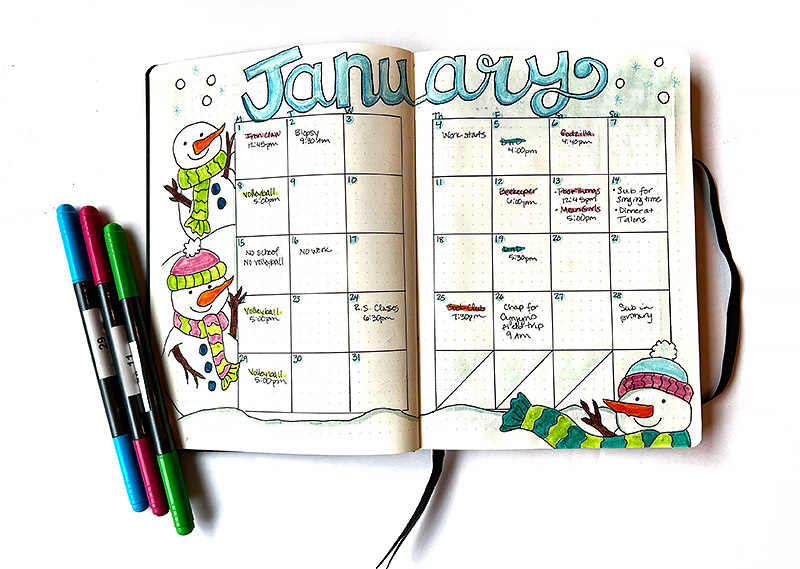 January
M T W
Th F Sa Su
1 2 3
Iron Claw Biopsy
12:45pm 9:30am
4 5 6 7
Work starts Godzilla
4:00pm 4:40pm
8 9 10
Volleyball
5:00pm
11 12 13 14
Beekeeper • Poor Things • Sub for
6:00pm 12:45pm singing time
• Mean Girls • Dinner at
5:00pm
15 16 17
No school No work
No volleyball
18 19 20 21
5:30pm
22 23 24
Volleyball R.S. Class
5:00pm 6:30pm
25 26 27 28
Book Club Chap for Sub in
7:30pm primary
field trip
9 am
29 30 31
Volleyball
5:00pm
29
11